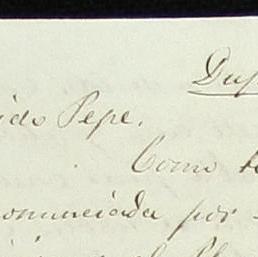 Dup
ido Pepe.
Como te
onunciada por